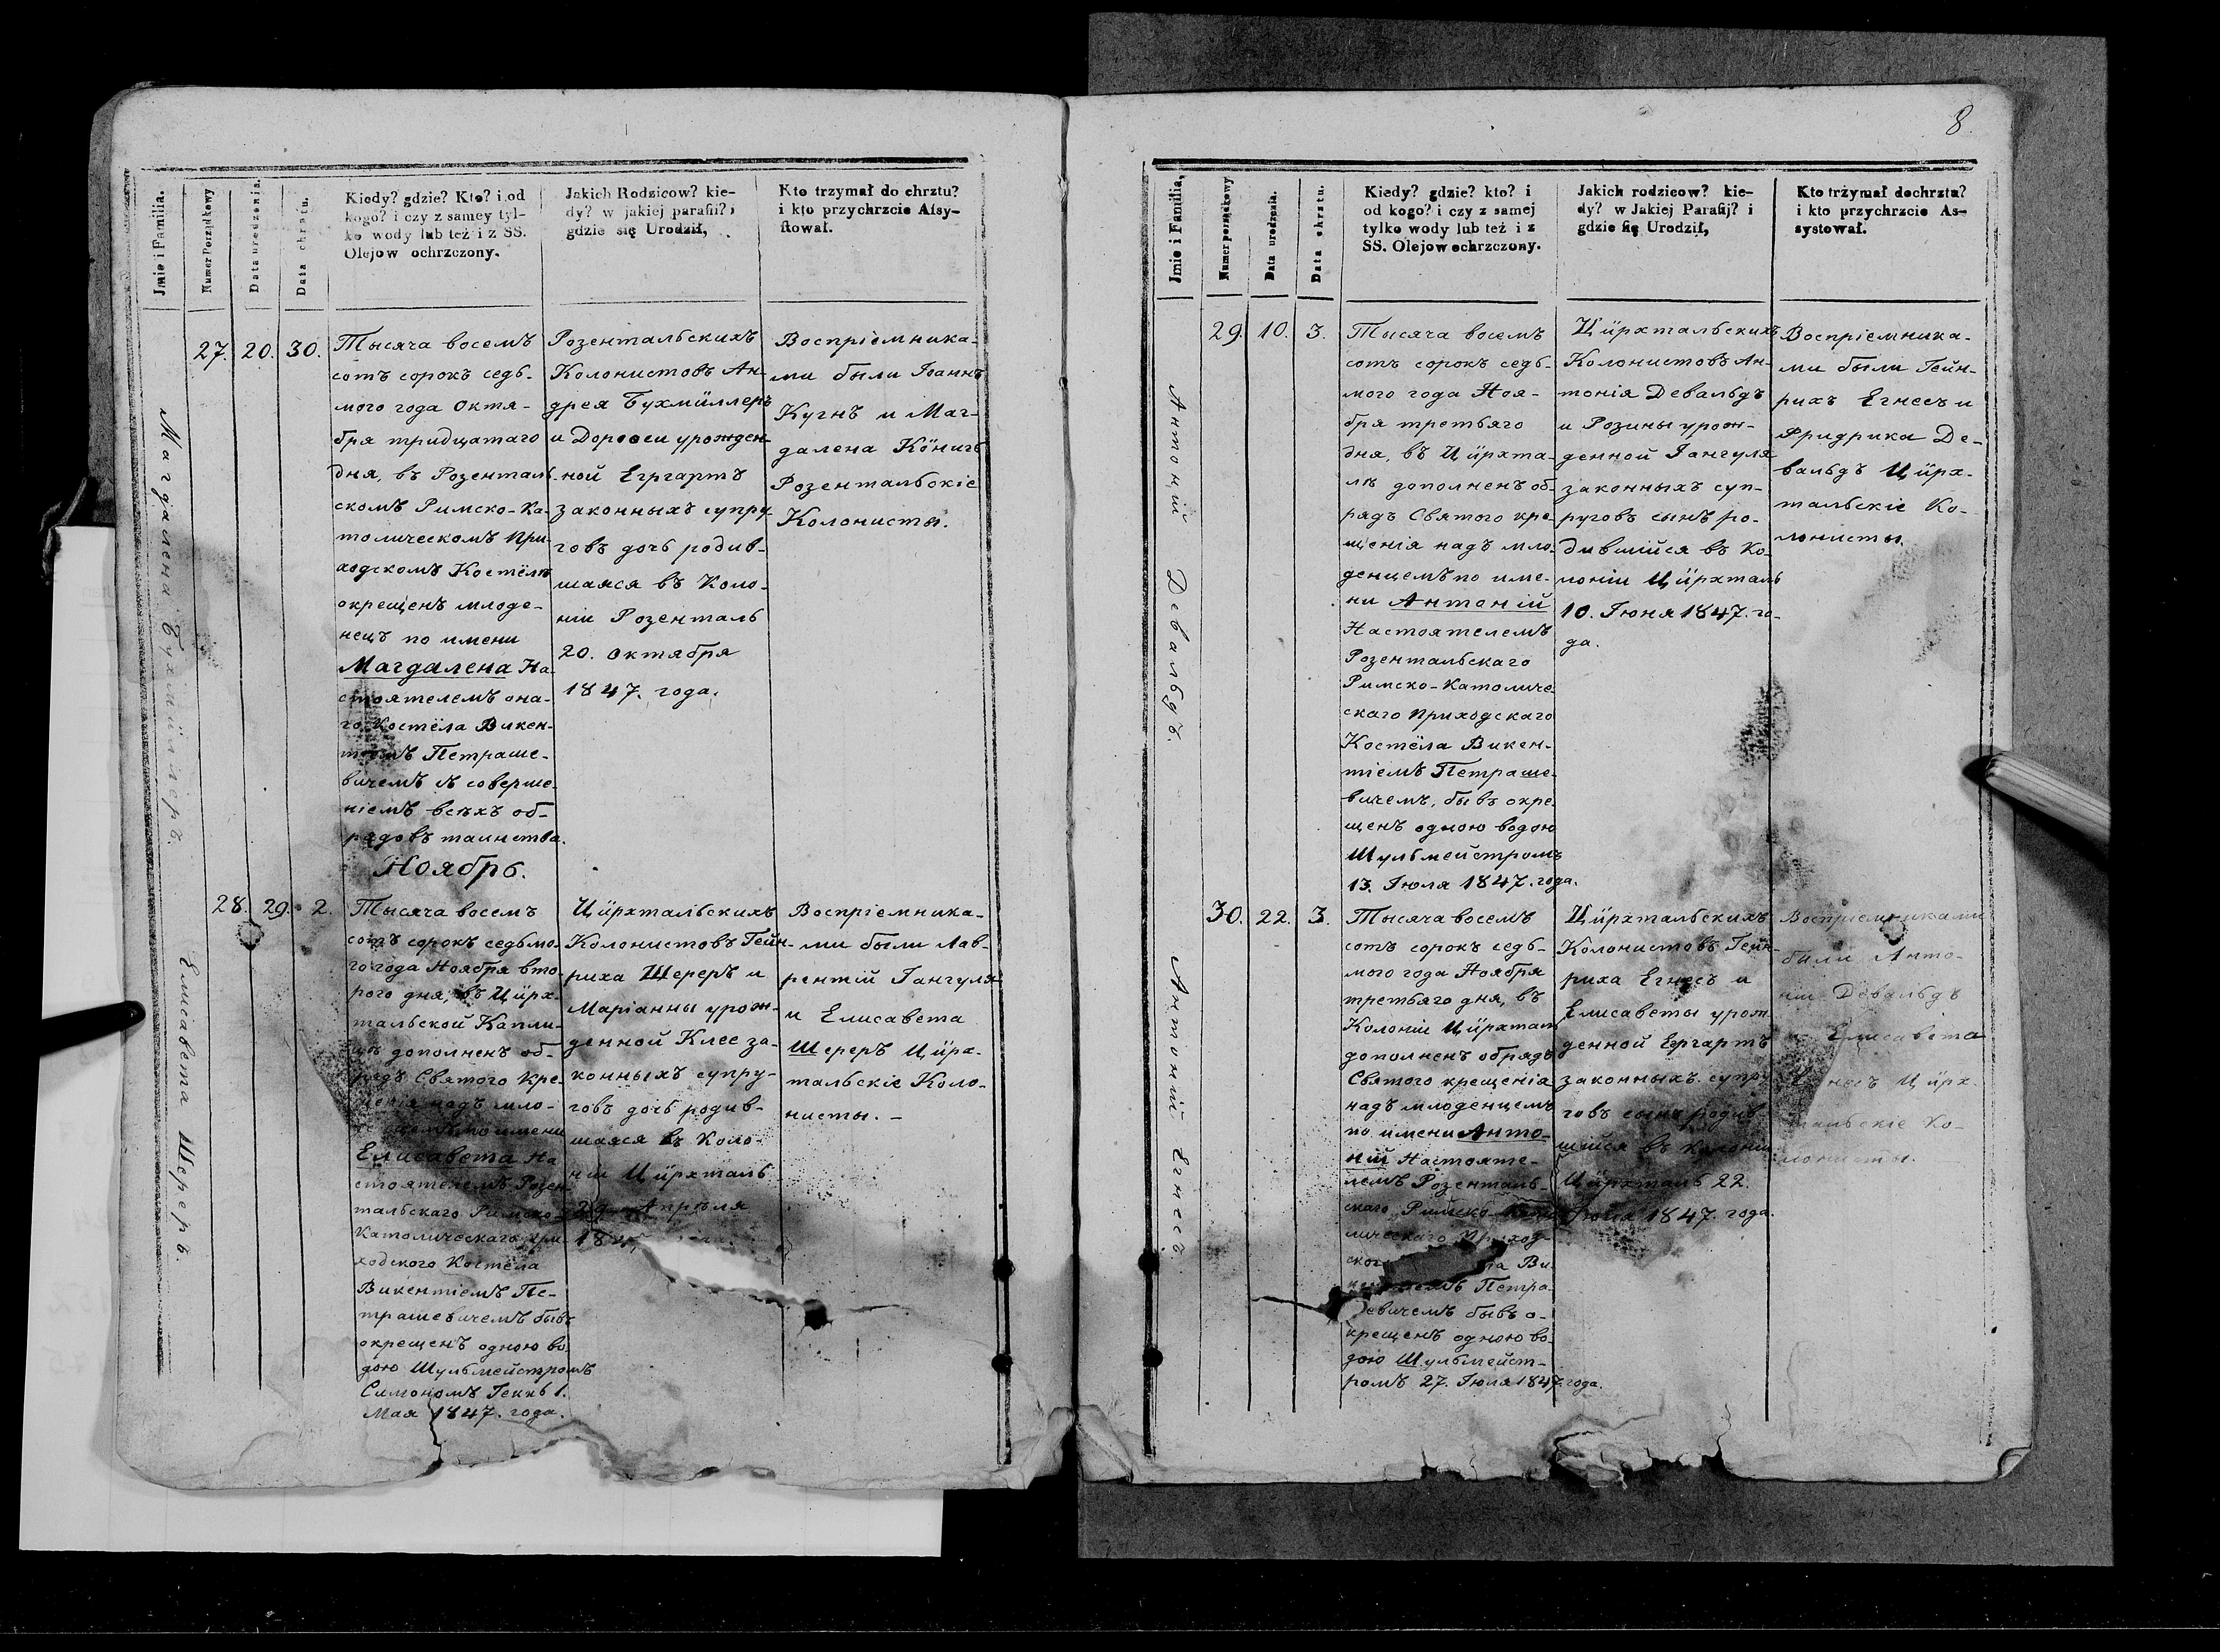 8
Jmie i Familia.
Numer Porządkowy
Data urodzenia.
Data chrztu.
Kiedy? gdzie? Kto? i od
kogo? i czy z samey tyl-
ko wody lub też i z SS.
Olejow ochrzczony.
Jakich Rodzicow? kie-
dy? w jakiej parafii? i
gdzie się Urodził,
Kto trzymał do chrztu?
i kto przychrzcie Afsy-
ftował.
Магдалена Бухмüллеръ.
27. 20. 30.
Тысяча восемъ
сотъ сорокъ седь-
мого года Октя-
бря тридцатаго
дня, въ Розенталь-
скомъ Римско-Ка-
толическомъ При-
ходскомъ Костёлѣ
окрещенъ младе-
нецъ по имени
Магдалена На-
стоятелемъ она-
го Костёла Викен-
тіемъ Петраше-
вичемъ съ соверше-
ніемъ всѣхъ об-
рядовъ таинства.
Розентальскихъ
Колонистовъ Ан-
дрея Бухмüллеръ
и Доровеи урожден-
ной Ергартъ
законныхъ супру-
говъ дочь родив-
шаяся въ Коло-
ніи Розенталь
20. Октября
1847. года.
Воспріемника-
ми были Іоаннъ
Кугнъ и Маг-
далена Кöнигъ
Розентальскіе
Колонисты.
Ноябрь.
Елисавета Шереръ.
28. 29. 2.
Тысяча восемъ
сотъ сорокъ седьмо-
го года Ноября вто-
рого дня, въ Цüрх-
тальской Капли-
цѣ дополненъ об-
рядъ Святого Кре-
щенія надъ мло-
денцемъ по имени
Елисавета На-
стоятелемъ Розен-
тальскаго Римско-
Католическаго При-
ходского Костёла
Викентіемъ Пе-
трашевичемъ бывъ
окрещенъ одною во-
дою Шульмейстромъ
Симономъ Геккъ 1.
Мая 1847. года.
Цüрхтальскихъ
Колонистовъ Гейн-
риха Шереръ и
Маріанны урож-
денной Клее за-
конныхъ супру-
говъ дочь родив-
шаяся въ Коло-
ніи Цüрхталь
29. Апрѣля
Воспріемника-
ми были Лав-
рентій Гангуля
и Елисавета
Шереръ Цüрх-
тальскіе Коло-
нисты. -
Jmie i Familia,
Numer porządkowy
Data urodzenia.
Data chrztu.
Kiedy? gdzie? kto? i
od kogo? i czy z samej
tylko wody lub też i z
SS. Olejow ochrzczony.
Jakich rodzicow? kie-
dy? w Jakiej Parafij? i
gdzie fię Urodził,
Kto trżymał dochrzta?
i kto przychrzcie As-
systował.
Антоній Девальдъ.
29. 10. 3.
Тысяча восемъ
сотъ сорокъ седь-
мого года Ноя-
бря третьяго
дня, въ Цüрхта-
лѣ дополненъ об-
рядъ Святого кре-
щенія надъ мло-
денцемъ по име-
ни Антоній
Настоятелемъ
Розентальскаго
Римско-Католиче-
скаго Приходскаго
Костёла Викен-
тіемъ Петраше-
вичемъ, бывъ окре-
щенъ одною водою
Шульмейстромъ
13. Іюля 1847. года.
Цüрхтальскихъ
Колонистовъ Ан-
тонія Девальдъ
и Розины урож-
денной Гангуля
законныхъ суп-
руговъ сынъ ро-
дившійся въ Ко-
лоніи Цüрхталь
10. Іюня 1847. го-
да.
Воспріемника-
ми были Гейн-
рихъ Егнесъ и
Фридрика Де-
вальдъ Цüрх-
тальскіе Ко-
лонисты.
Антоній Егнесъ.
30. 22. 3.
Тысяча восемъ
сотъ сорокъ седь-
мого года Ноября
третьяго дня, въ
Колоніи Цüрхталь
дополненъ обрядъ
Святого крещенія
надъ младенцемъ
по имени Анто-
ній Настояте-
лемъ Розенталь-
скаго Римско-Като-
лическаго Приход-
ского Ви-
кентіемъ Петра-
шевичемъ бывъ о-
крещенъ одною во-
дою Шульмейст-
ромъ 27. Іюля 1847. года.
Цüрхтальскихъ
Колонистовъ Гейн-
риха Егнесъ и
Елисаветы урож-
денной Ергартъ
законныхъ супру-
говъ сынъ родив-
шійся въ Колоніи
Цüрхталь 22.
1847. года.
Воспріемниками
были Анто-
ній Девальдъ
и Елисавета
Егнесъ Цüрх-
тальскіе Ко-
лонисты.